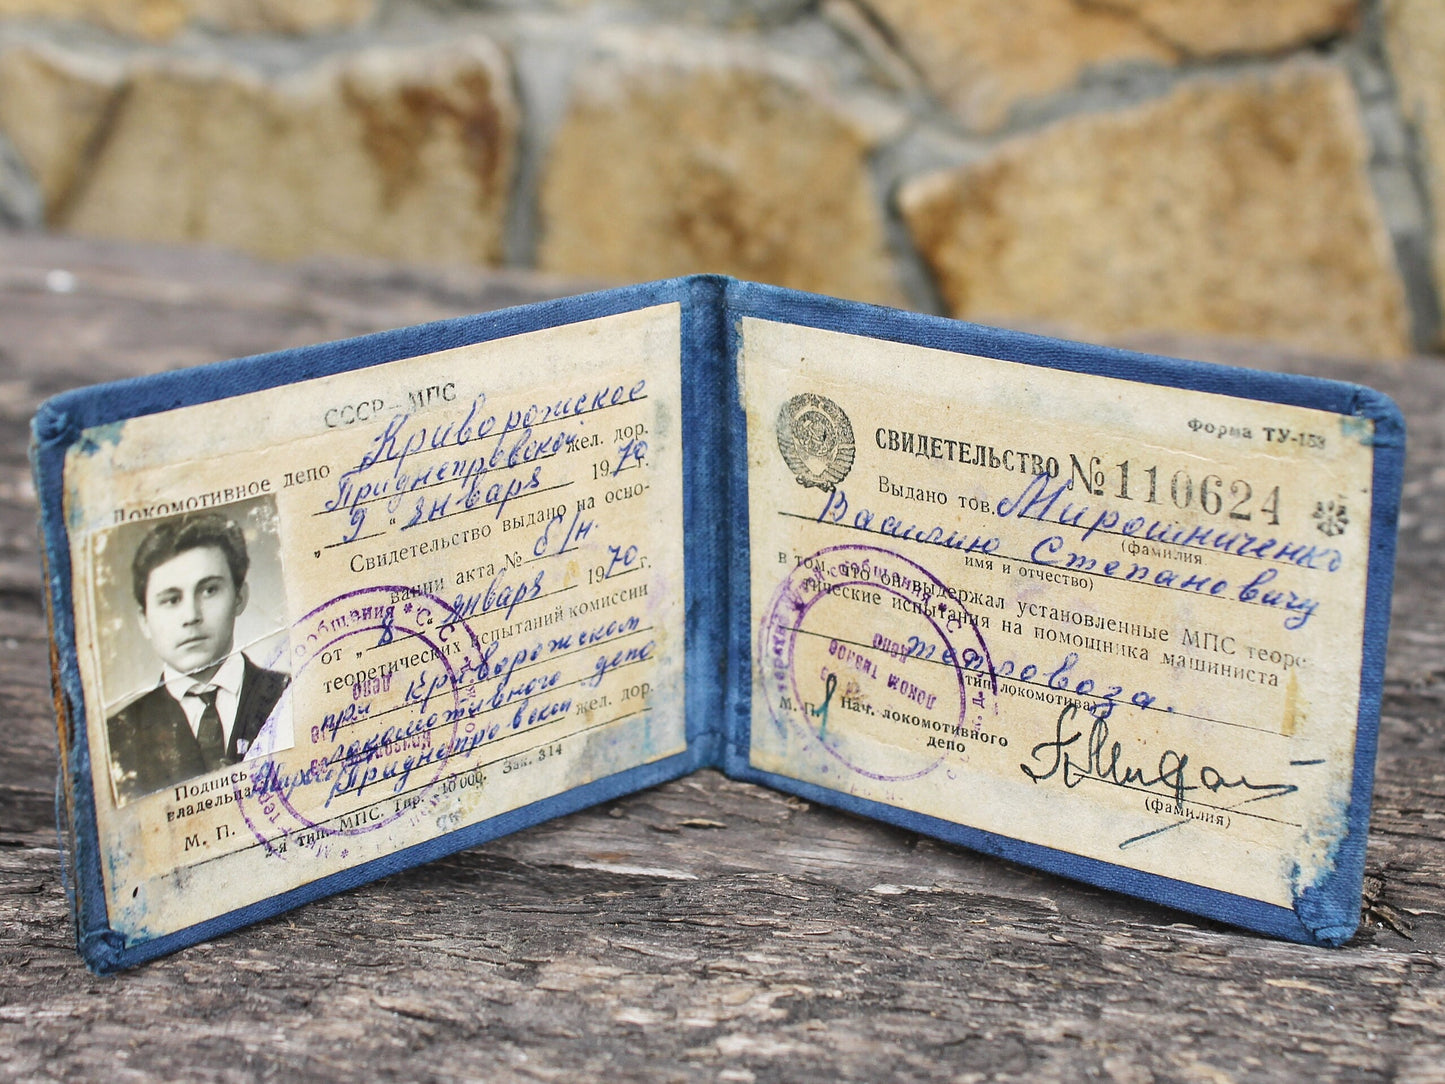 СССР – МПС
Локомотивное депо Криворожское
Приднепровской жел. дор.
„ 9 “ января 1970 г.
Свидетельство выдано на осно-
вании акта № б/н.
от „ 8 “ января 1970 г.
теоретических испытаний комиссии
при Криворожском
локомотивного депо
Приднепровской жел. дор.
Подпись
владельца
М. П.
2-я тип. МПС. Тир. 10 000. Зак. 314
Форма ТУ-153
СВИДЕТЕЛЬСТВО № 110624
Выдано тов. Мирошниченко
(фамилия
Василию Степановичу
имя и отчество)
в том, что он выдержал установленные МПС теоре-
тические испытания на помощника машиниста
тепловоза.
тип локомотива)
М. П. Нач. локомотивного
депо
(фамилия)